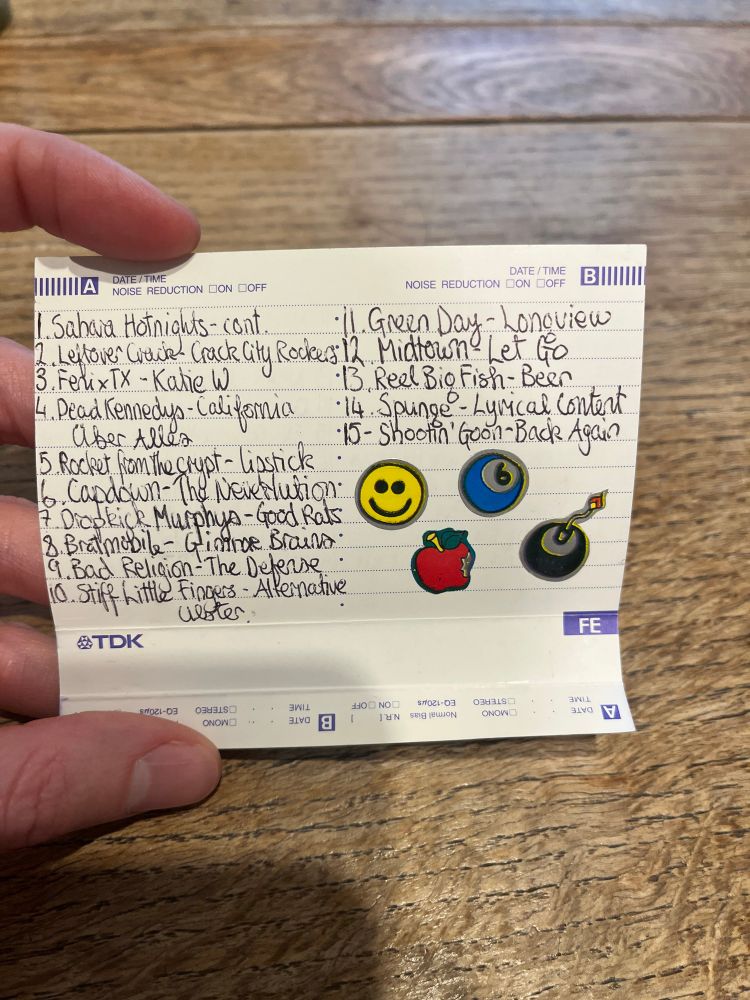 A DATE / TIME
NOISE REDUCTION ☐ON ☐OFF
DATE / TIME B
NOISE REDUCTION ☐ON ☐OFF
1. Sahara Hotnights - cont.
2. Leftover Crack - Crack City Rockers
3. Felix TX - Katie W
4. Dead Kennedys - California
Über Alles
5. Rocket from the crypt - lipstick
6. Capdown - The Neverlution
7. Dropkick Murphys - Good Rats
8. Bratmobile - Gimme Brains
9. Bad Religion - The Defense
10. Stiff Little Fingers - Alternative
Ulster.
11. Green Day - Longview
12. Midtown - Let Go
13. Reel Big Fish - Beer
14. Spunge - Lyrical Content
15 - Shootin' Goon - Back Again
6
TDK
FE
A DATE TIME · · ☐MONO ☐STEREO Normal Bias EQ-120µs N.R. [ ☐ON ☐OFF ]
B DATE TIME · · ☐MONO ☐STEREO EQ-120µs